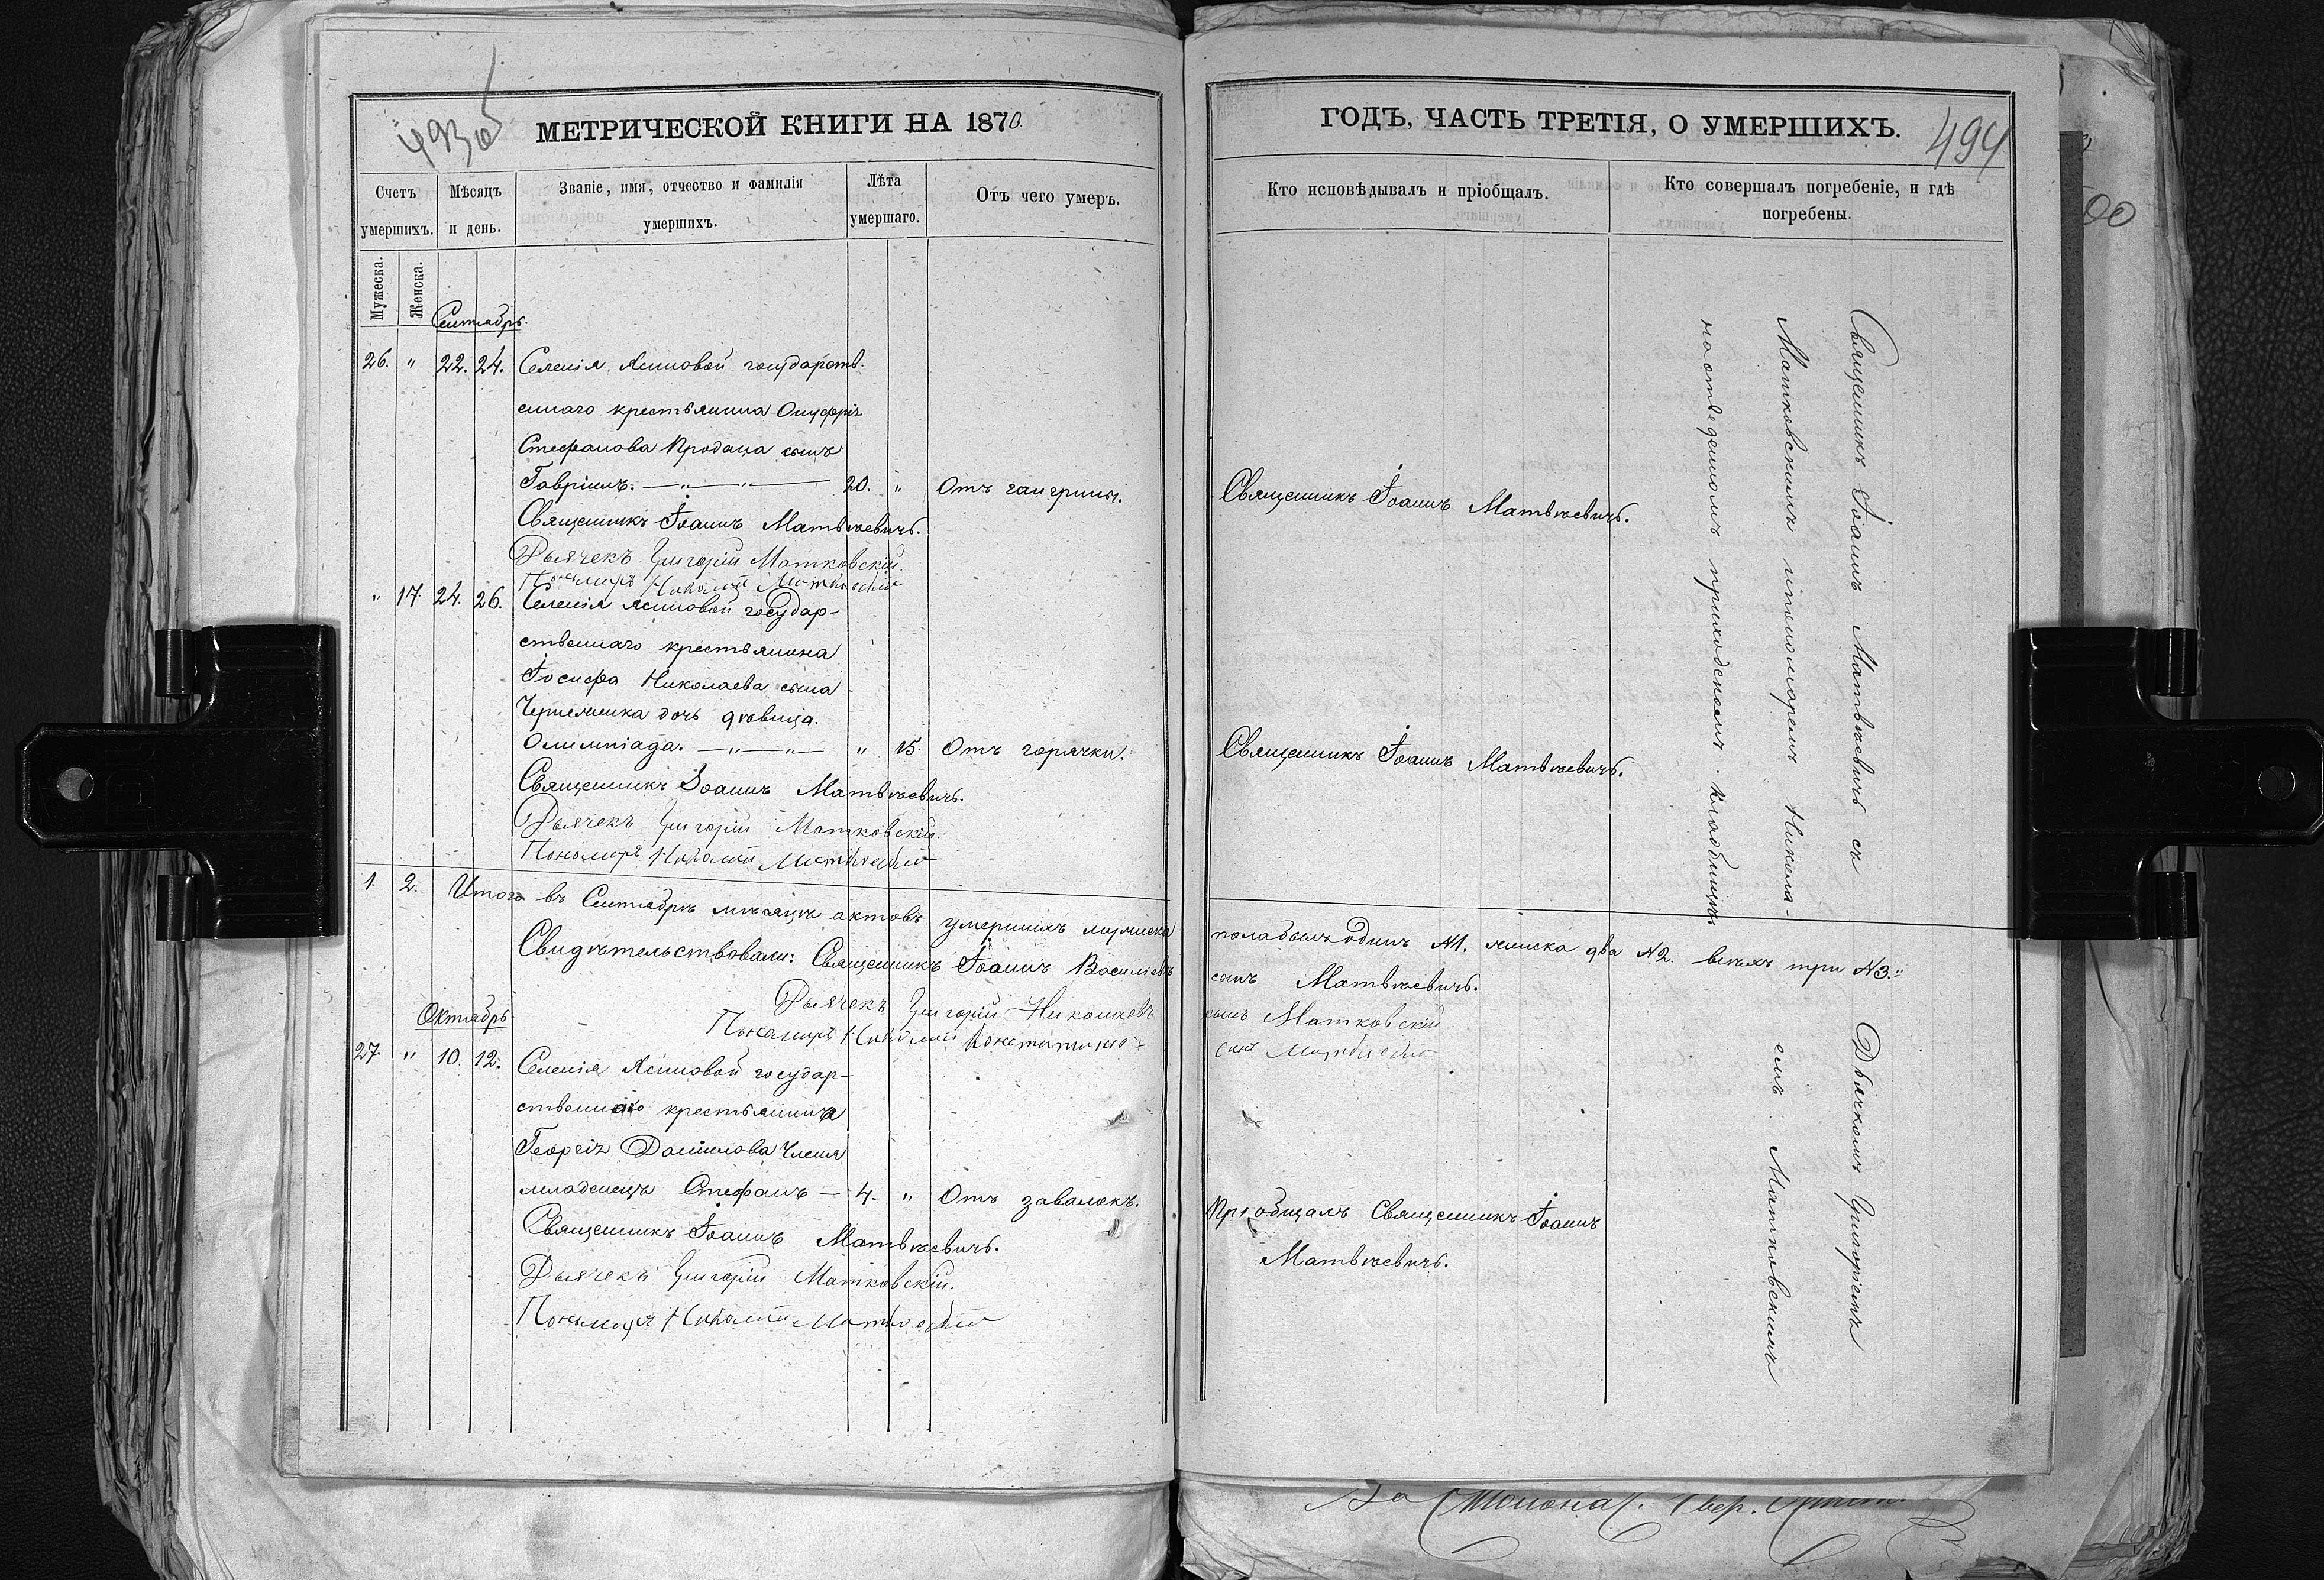 493 об
МЕТРИЧЕСКОЙ КНИГИ НА 1870.
Счетъ умершихъ.
Мѣсяцъ и день.
Званіе, имя, отчество и фамилія умершихъ.
Лѣта умершаго.
Отъ чего умеръ.
Мужеска.
Женска.
Сентябрь.
26. " 22. 24. Селенія Ясиновой государств.
еннаго крестьянина Онуфрія
Стефанова Продана сынъ
Гавріилъ. — " — " — 20. " Отъ гангрины.
Священникъ Іоаннъ Матвѣевичъ.
Дьячекъ Григорій Матковскій.
Пономарь Николай
" 17. 24. 26. Селенія Ясиновой государ-
ственнаго крестьянина
Іосифа Николаева сына
дочь дѣвица.
Олимпіада. — " — " — " 15. Отъ горячки.
Священникъ Іоаннъ Матвѣевичъ.
Дьячекъ Григорій Матковскій.
Пономарь Николай
1. 2. Итого въ Сентябрѣ мѣсяцѣ актовъ умершихъ мужеска
Свидѣтельствовали: Священникъ Іоаннъ Василіевъ
Дьячекъ Григорій Николаевъ
Пономарь Николай
Октябрь.
27. " 10. 12. Селенія Ясиновой государ-
ственнаго крестьянина
Георгія Данилова
младенецъ Стефанъ — 4. " Отъ завалокъ.
Священникъ Іоаннъ Матвѣевичъ.
Дьячекъ Григорій Матковскій.
Пономарь Николай
ГОДЪ, ЧАСТЬ ТРЕТІЯ, О УМЕРШИХЪ.
494
Кто исповѣдывалъ и пріобщалъ.
Кто совершалъ погребеніе, и гдѣ погребены.
Священникъ Іоаннъ Матвѣевичъ.
Священникъ Іоаннъ Матвѣевичъ.
Священникъ Іоаннъ Матвѣевичъ съ
Матковскимъ и пономаремъ Никола-
на отведенномъ приходскомъ кладбищѣ.
пола былъ одинъ №1. женска два №2. всѣхъ три №3."
сынъ Матвѣевичъ.
сынъ Матковскій
сынъ
Пріобщалъ Священникъ Іоаннъ
Матвѣевичъ.
Дьячкомъ Григоріемъ
емъ Матковскимъ